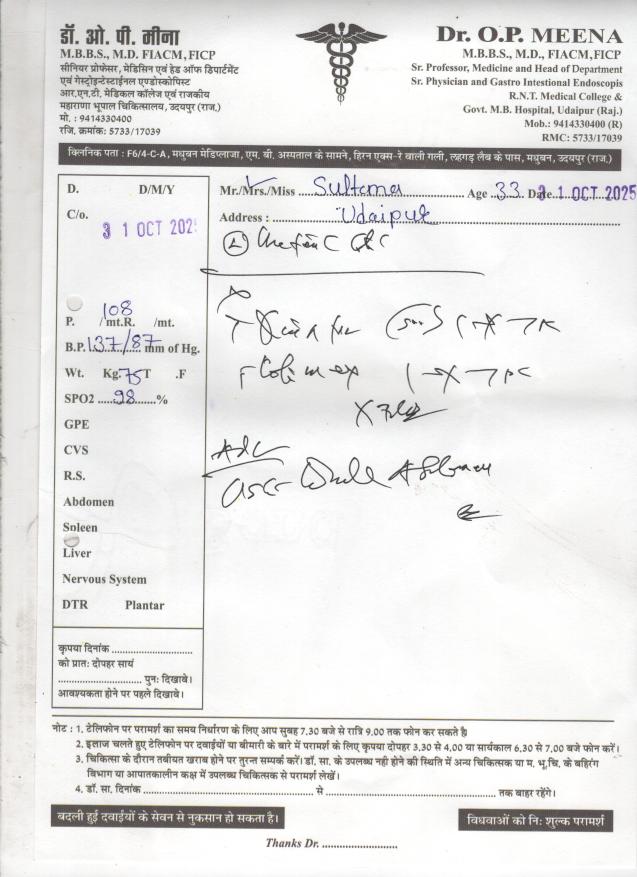 डॉ. ओ. पी. मीना
M.B.B.S., M.D. FIACM, FICP
सीनियर प्रोफेसर, मेडिसिन एवं हेड ऑफ डिपार्टमेंट
एवं गेस्ट्रोइन्टेस्टाईनल एण्डोस्कोपिस्ट
आर.एन.टी. मेडिकल कॉलेज एवं राजकीय
महाराणा भूपाल चिकित्सालय, उदयपुर (राज.)
मो. : 9414330400
रजि. क्रमांक: 5733/17039
Dr. O.P. MEENA
M.B.B.S., M.D., FIACM,FICP
Sr. Professor, Medicine and Head of Department
Sr. Physician and Gastro Intestional Endoscopis
R.N.T. Medical College &
Govt. M.B. Hospital, Udaipur (Raj.)
Mob.: 9414330400 (R)
RMC: 5733/17039
क्लिनिक पता : F6/4-C-A, मधुबन मेडिप्लाजा, एम. बी. अस्पताल के सामने, हिरन एक्स-रे वाली गली, लहगड़ लैब के पास, मधुबन, उदयपुर (राज.)
D. D/M/Y
C/o.
31 OCT 202
Mr./Mrs./Miss Sultana Age 33 Date 31 OCT 2025
Address : Udaipur
P. 108 /mt.R. /mt.
B.P. 137/87 mm of Hg.
Wt. Kg. 75 T .F
SPO2 98 %
GPE
CVS
R.S.
Abdomen
Spleen
Liver
Nervous System
DTR Plantar
Adv
USG Whole Abdomen
कृपया दिनांक
को प्रातः दोपहर सायं
पुनः दिखावें।
आवश्यकता होने पर पहले दिखावें।
नोट : 1. टेलिफोन पर परामर्श का समय निर्धारण के लिए आप सुबह 7.30 बजे से रात्रि 9.00 तक फोन कर सकते है।
2. इलाज चलते हुए टेलिफोन पर दवाईयों या बीमारी के बारे में परामर्श के लिए कृपया दोपहर 3.30 से 4.00 या सायंकाल 6.30 से 7.00 बजे फोन करें।
3. चिकित्सा के दौरान तबीयत खराब होने पर तुरन्त सम्पर्क करें। डॉ. सा. के उपलब्ध नही होने की स्थिति में अन्य चिकित्सक या म. भू. चि. के बहिरंग
विभाग या आपातकालीन कक्ष में उपलब्ध चिकित्सक से परामर्श लेखें।
4. डॉ. सा. दिनांक से तक बाहर रहेंगे।
बदली हुई दवाईयों के सेवन से नुकसान हो सकता है।
विधवाओं को नि: शुल्क परामर्श
Thanks Dr.